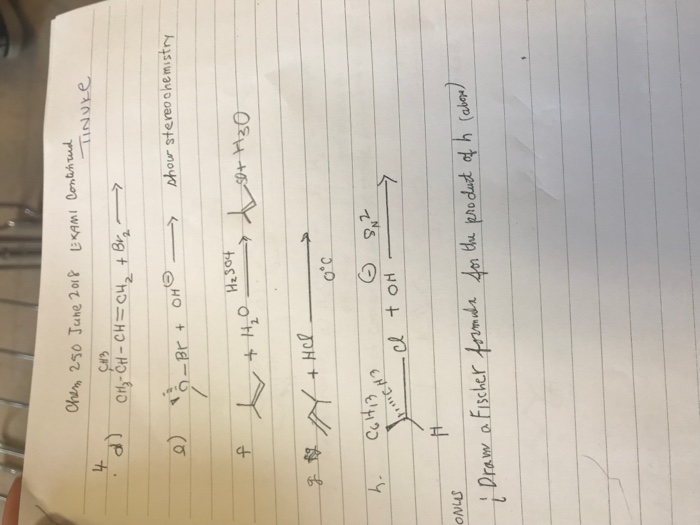 Chem 250 June 2018 EXAM1 Continued
TINUKE
4
CH3
d) CH3-CH-CH=CH2 + Br2 ⟶
e) -Br + OH⊖ ⟶ show stereochemistry
f + H2O H2SO4 ⟶ + H3O
g + HCl ⟶ 0°C
h. C6H13 CH3 H Cl + OH ⊖ SN2 ⟶
ONUS
i Draw a Fischer formula for the product of h (above)